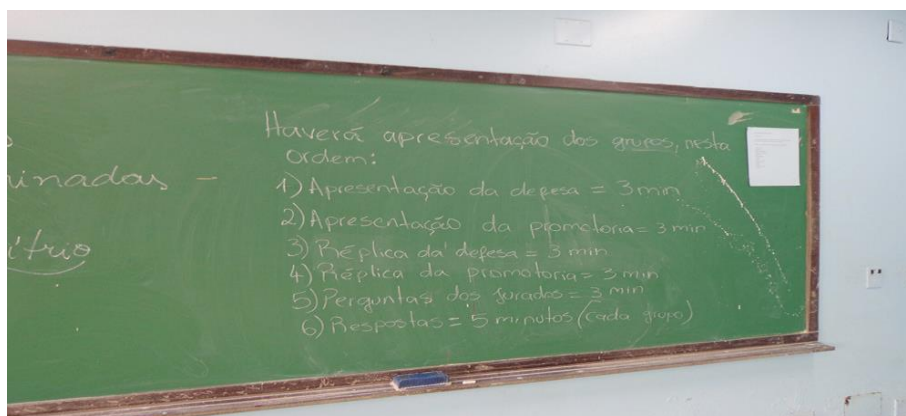 inadas -
ítrio
Haverá apresentação dos grupos, nesta
ordem:
1) Apresentação da defesa = 3 min
2) Apresentação da promotoria = 3 min
3) Réplica da defesa = 3 min
4) Réplica da promotoria = 3 min
5) Perguntas dos jurados = 3 min
6) Respostas = 5 minutos (cada grupo)